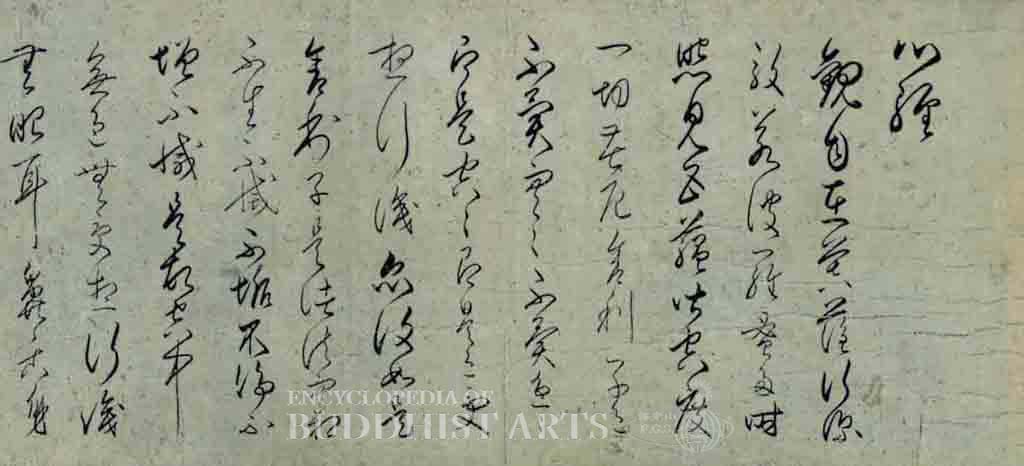 心經
觀自在菩薩行深
般若波羅蜜多時
照見五蘊皆空度
一切苦厄舍利子色
不異空〻不異色
即是空〻即是色受
想行識亦復如是
舍利子是諸法空相
不生不滅不垢不淨不
增不減是故空中
無色無受想行識
無眼耳鼻舌身
ENCYCLOPEDIA OF
BUDDHIST ARTS